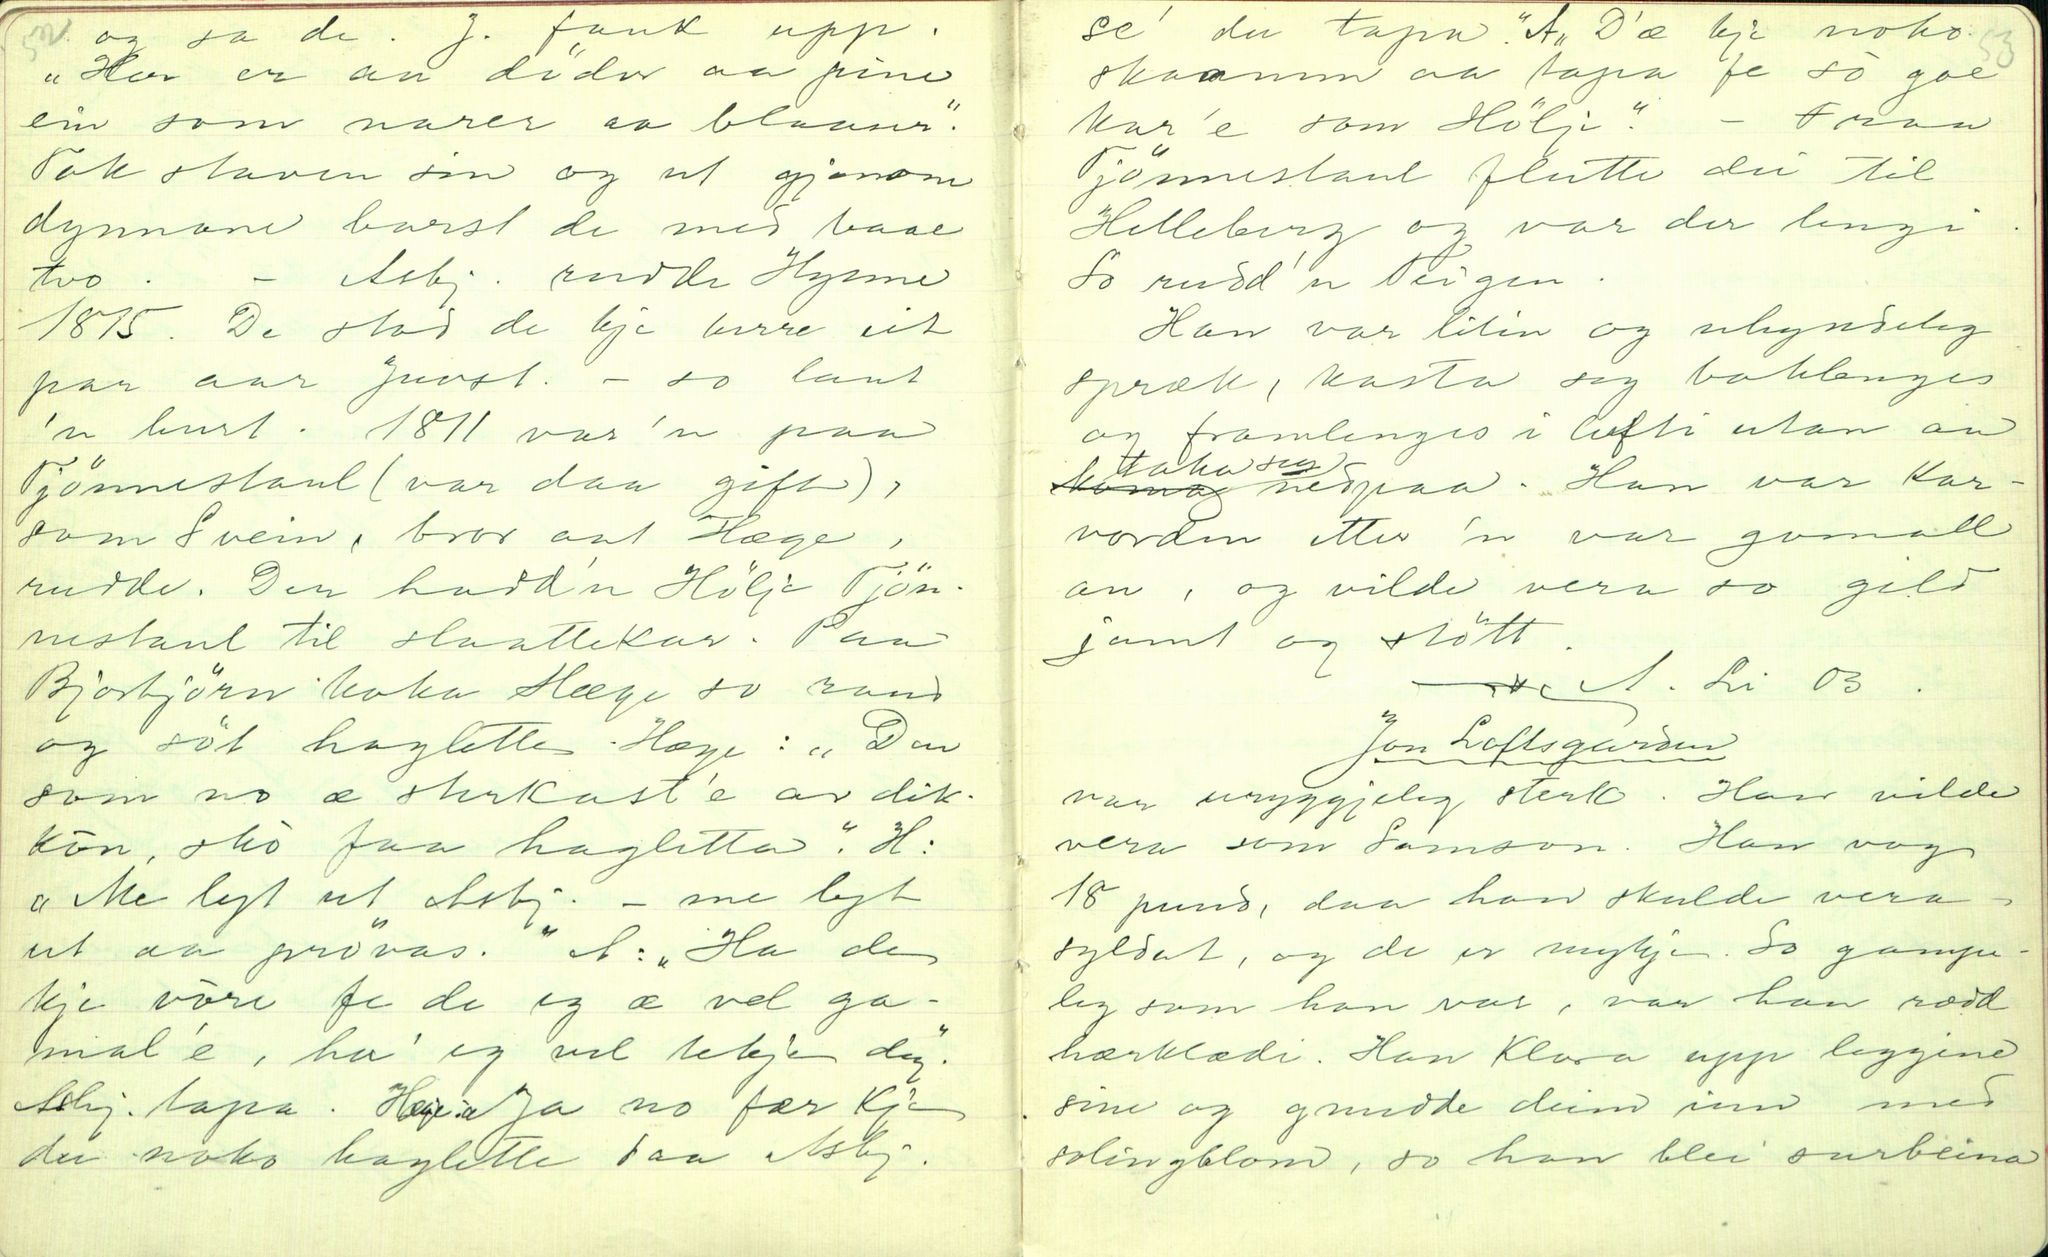 52
og sa de. J. fauk upp.
„Her er au död or aa pine
ein som narer aa blaaser".
Tok staven sin og ut gjenom
dynnane barst de med baae
tvo. - Asbj. rudde Hynne
1815. De stod de kje burre eit
par aar Juvst. - so laut
'n burt. 1811 var 'n paa
Tjönnestaul (var daa gift),
som Svein, bror aat Hæge,
rudde. Der hadd'n Hölje Tjön-
nestaul til slaattekar. Paa
Bjosbjörn koka Hæge so raud
og söt hagletta. Hæge: „Den
som no æ sterkast'e av dik-
kòn, skò faa hagletta". H:
„Me lyt ut Asbj. - me lyt
ut aa prövas." A: „Ha de
kje vòre fe de eg æ vel ga-
mal'e, ha' eg vel tekje deg".
Asbj. tapa. Hæge: „Ja no fær kje
du noko hagletta daa Asbj.
53
se' du tapa". A „D'æ kje noko
skaamm aa tapa fe sò goe
kar'e som Hölje". - Fraa
Tjönnestaul flutte dei til
Helleberg og var der lengi.
So rudd'n Teigen.
Han var litin og uhyndeleg
spræk, kasta seg baklenges
og framlenges i lufti utan aa
taka seg
koma nedpaa. Han var Kar-
vorden etter 'n var gamall
an, og vilde vera so gild
jamt og stött.
A. Li 03.
Jon Loftsgarden
var uryggjeleg sterk. Han vilde
vera som Samson. Han vog
18 pund, daa han skulde vera
syldat, og de er mykje. So gampe-
leg som han var, var han rædd
hærklædi. Han klora upp leggine
sine og gnudde deim inn med
solingblom, so han blei surbeina